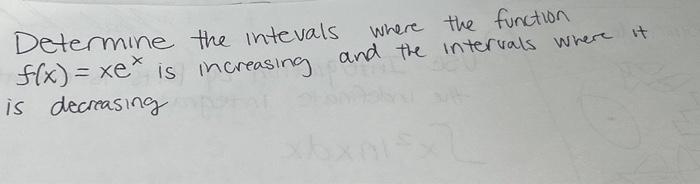 Determine the intevals where the function
f(x) = xeˣ is increasing and the intervals where it
is decreasing